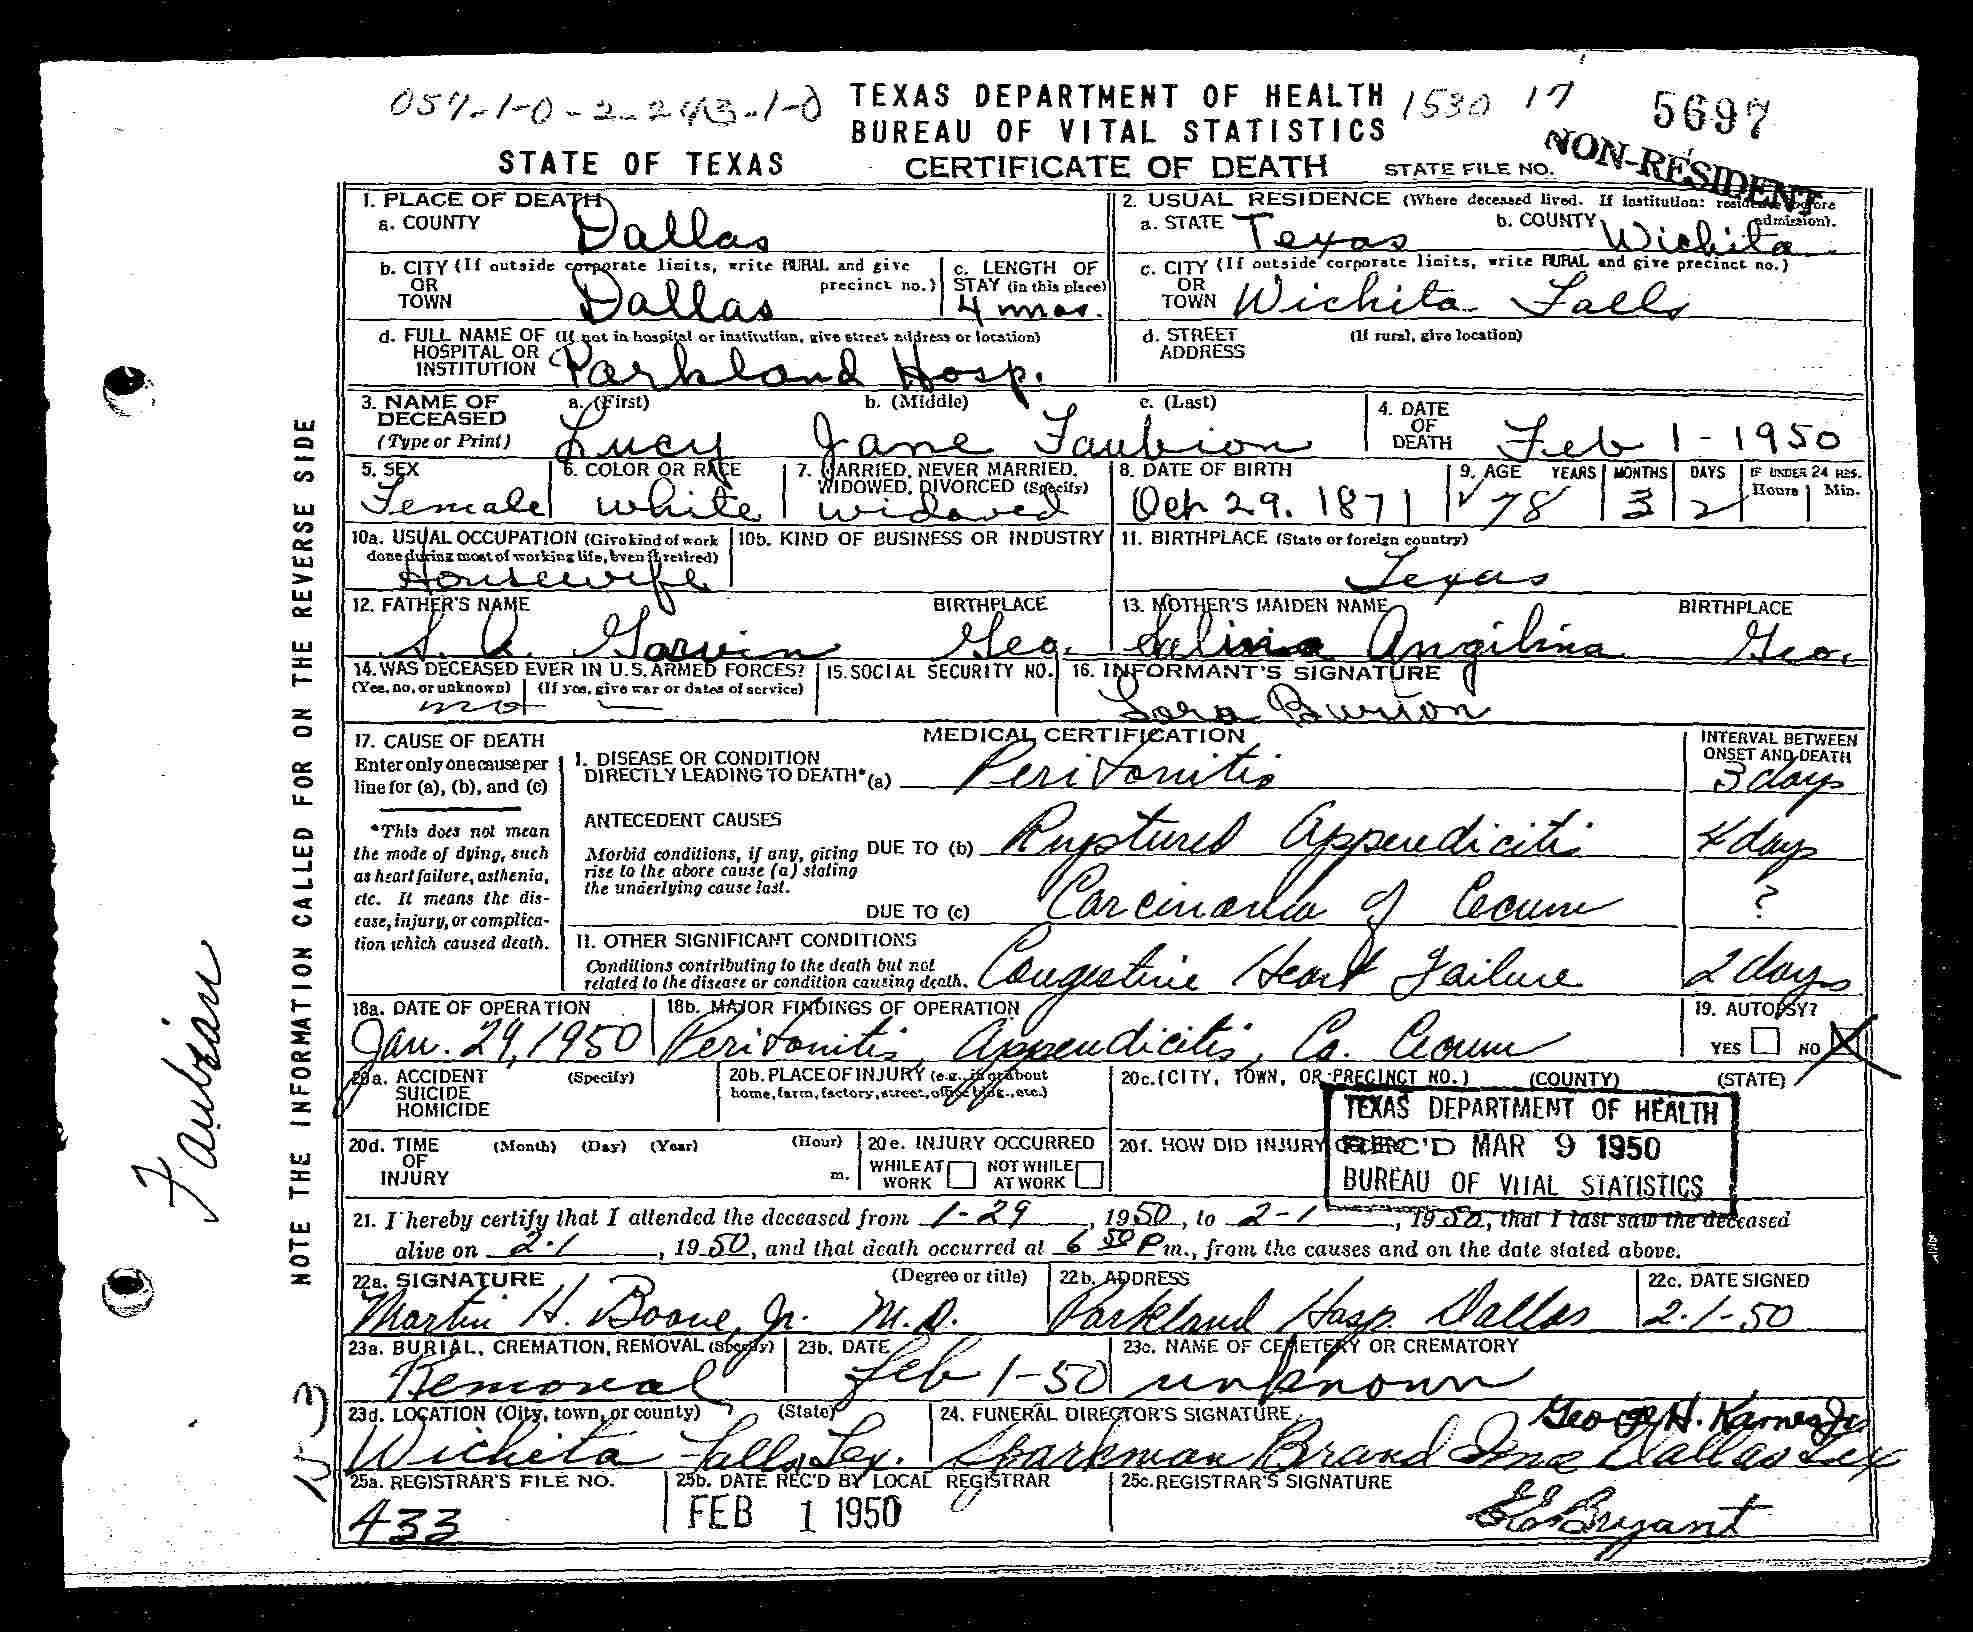 057-1-0-2-243-1-0 TEXAS DEPARTMENT OF HEALTH 1530 17 5697
BUREAU OF VITAL STATISTICS
STATE OF TEXAS CERTIFICATE OF DEATH STATE FILE NO. NON-RESIDENT
1. PLACE OF DEATH
a. COUNTY Dallas
2. USUAL RESIDENCE (Where deceased lived. If institution: residence before admission).
a. STATE Texas b. COUNTY Wichita
b. CITY (If outside corporate limits, write RURAL and give precinct no.)
OR
TOWN Dallas
c. LENGTH OF
STAY (in this place)
4 mos.
c. CITY (If outside corporate limits, write RURAL and give precinct no.)
OR
TOWN Wichita Falls
d. FULL NAME OF (If not in hospital or institution, give street address or location)
HOSPITAL OR
INSTITUTION Parkland Hosp.
d. STREET (If rural, give location)
ADDRESS
3. NAME OF a. (First) b. (Middle) c. (Last)
DECEASED
(Type or Print) Lucy Jane Faubion
4. DATE
OF
DEATH Feb 1-1950
5. SEX
Female
6. COLOR OR RACE
White
7. MARRIED, NEVER MARRIED,
WIDOWED, DIVORCED (Specify)
Widowed
8. DATE OF BIRTH
Oct 29. 1871
9. AGE YEARS MONTHS DAYS IF UNDER 24 HRS.
Hours Min.
78 3 2
10a. USUAL OCCUPATION (Give kind of work
done during most of working life, even if retired)
Housewife
10b. KIND OF BUSINESS OR INDUSTRY
11. BIRTHPLACE (State or foreign country)
Texas
12. FATHER'S NAME BIRTHPLACE
S. A. Garvin Geo.
13. MOTHER'S MAIDEN NAME BIRTHPLACE
Angilina Geo.
14. WAS DECEASED EVER IN U.S. ARMED FORCES?
(Yes, no, or unknown) (If yes, give war or dates of service)
no —
15. SOCIAL SECURITY NO.
16. INFORMANT'S SIGNATURE
Burton
17. CAUSE OF DEATH
Enter only one cause per
line for (a), (b), and (c)
*This does not mean
the mode of dying, such
as heart failure, asthenia,
etc. It means the dis-
ease, injury, or complica-
tion which caused death.
MEDICAL CERTIFICATION
INTERVAL BETWEEN
ONSET AND DEATH
I. DISEASE OR CONDITION
DIRECTLY LEADING TO DEATH* (a) Peritonitis 3 days
ANTECEDENT CAUSES
Morbid conditions, if any, giving
rise to the above cause (a) stating
the underlying cause last.
DUE TO (b) Ruptured Appendicitis 4 days
DUE TO (c) Carcinoma of Cecum ?
II. OTHER SIGNIFICANT CONDITIONS
Conditions contributing to the death but not
related to the disease or condition causing death. Congestive Heart Failure 2 days
18a. DATE OF OPERATION
Jan. 29, 1950
18b. MAJOR FINDINGS OF OPERATION
Peritonitis, Appendicitis, Ca. Cecum
19. AUTOPSY?
YES NO X
20a. ACCIDENT (Specify)
SUICIDE
HOMICIDE
20b. PLACE OF INJURY (e.g., in or about
home, farm, factory, street, office bldg., etc.)
20c. (CITY, TOWN, OR PRECINCT NO.) (COUNTY) (STATE)
20d. TIME (Month) (Day) (Year) (Hour)
OF
INJURY m.
20e. INJURY OCCURRED
WHILE AT NOT WHILE
WORK AT WORK
20f. HOW DID INJURY OCCUR?
TEXAS DEPARTMENT OF HEALTH
REC'D MAR 9 1950
BUREAU OF VITAL STATISTICS
21. I hereby certify that I attended the deceased from 1-29, 1950, to 2-1, 1950, that I last saw the deceased
alive on 2-1, 1950, and that death occurred at 6 50 P m., from the causes and on the date stated above.
22a. SIGNATURE (Degree or title)
Martin H. Boone, Jr. M.D.
22b. ADDRESS
Parkland Hosp. Dallas
22c. DATE SIGNED
2-1-50
23a. BURIAL, CREMATION, REMOVAL (Specify)
Removal
23b. DATE
Feb 1-50
23c. NAME OF CEMETERY OR CREMATORY
unknown
23d. LOCATION (City, town, or county) (State)
Wichita Falls, Tex.
24. FUNERAL DIRECTOR'S SIGNATURE George H. Karnes Jr.
Sparkman Brand Inc Dallas Tex
25a. REGISTRAR'S FILE NO.
433
25b. DATE REC'D BY LOCAL REGISTRAR
FEB 1 1950
25c. REGISTRAR'S SIGNATURE
E E Bryant
NOTE THE INFORMATION CALLED FOR ON THE REVERSE SIDE
Faubian
153